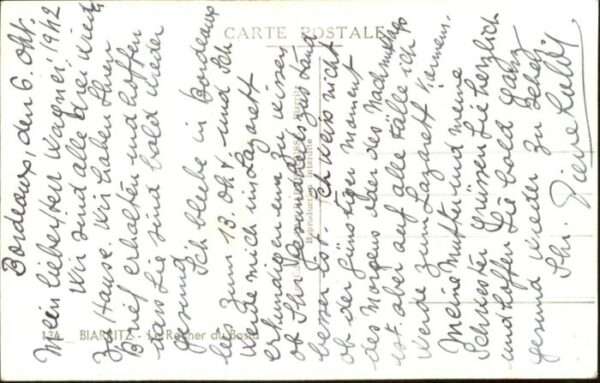 CARTE POSTALE
Bordeaux, den 6. Okt. 1942
Mein liebster Wagner!
Wir sind alle drei wieder
zu Hause. Wir haben Ihren
Brief erhalten und hoffen
dass Sie sind bald wieder
gesund.
Ich bleibe in Bordeaux
bis zum 13. Okt. und ich
werde mich im Lazarett
erkundigen um zu wissen
ob Ihr Gesundheitszustand
besser ist. Ich weiss nicht
ob der günstige Moment
des Morgens oder des Nachmittags
ist aber auf alle Fälle ich
werde zum Lazarett kommen.
Meine Mutter und meine
Schwester grüssen Sie herzlich
und hoffen Sie bald ganz
gesund wieder zu sehen.
Ihr.
BIARRITZ - Le Rocher du Basta
Reproduction interdite